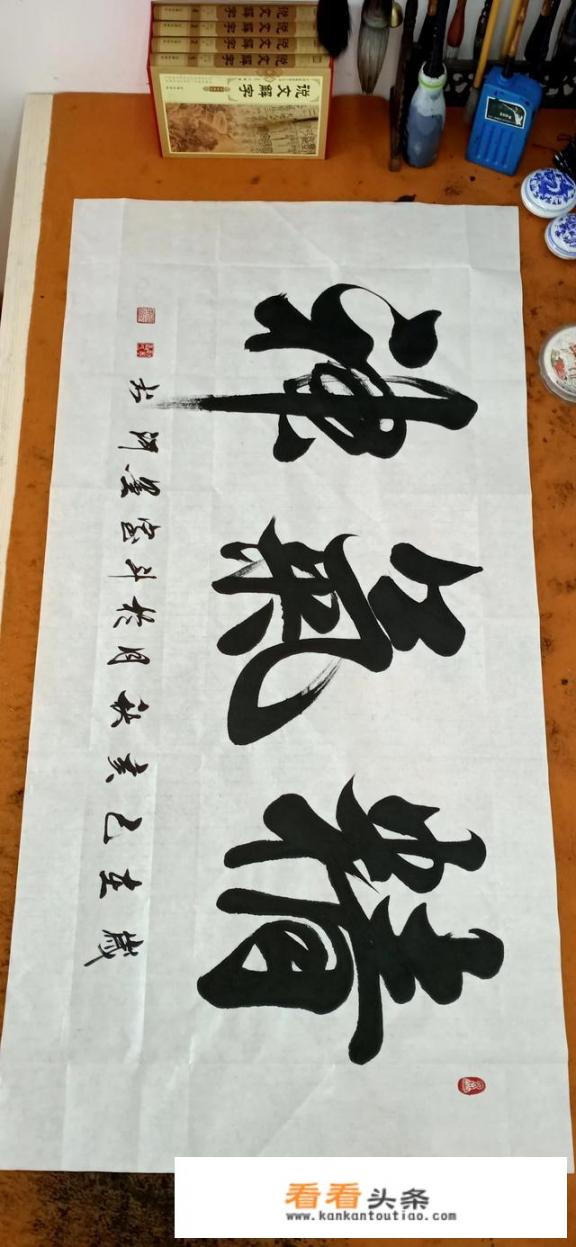 说文解字
说文解字
说文解字
说文解字
说文解字
精氣神
歲在己亥秋月於斗室墨
看看头条
www.kankantoutiao.com